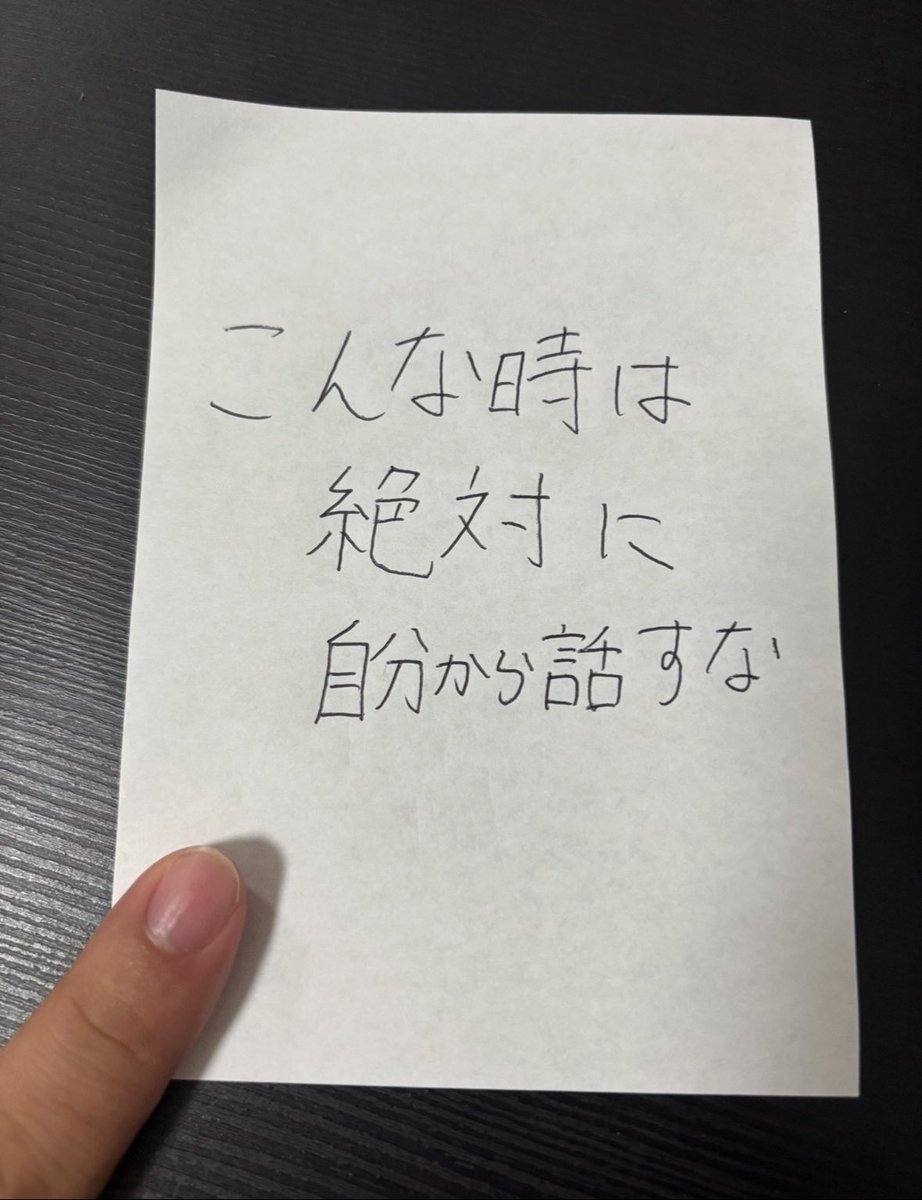 こんな時は
絶対に
自分から話すな